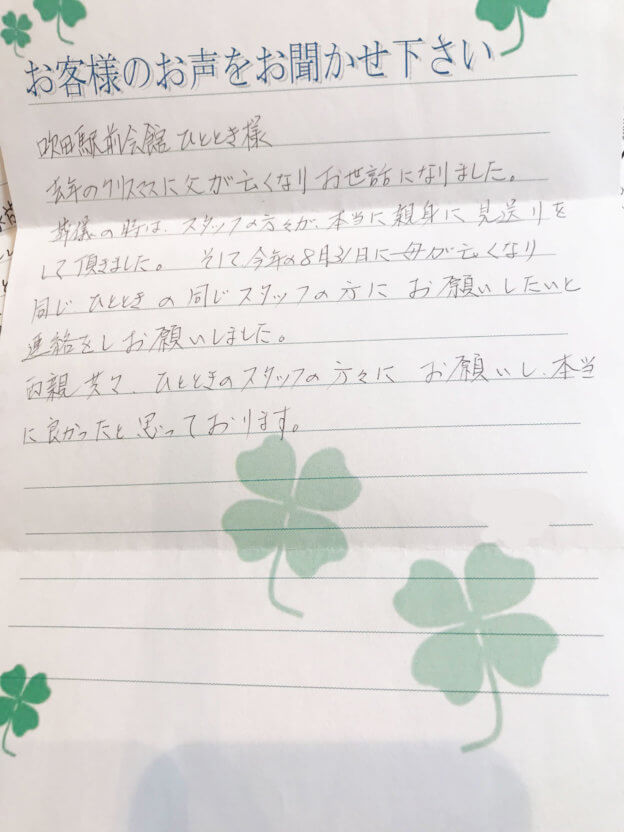 お客様のお声をお聞かせ下さい
吹田駅前会館ひととき様
去年のクリスマスに父が亡くなりお世話になりました。
葬儀の時は、スタッフの方々が、本当に親身に見送りを
して頂きました。そして今年の8月31日に母が亡くなり
同じ、ひとときの同じスタッフの方に お願いしたいと
連絡をしお願いしました。
両親共々、ひとときのスタッフの方々に お願いし、本当
に良かったと思っております。